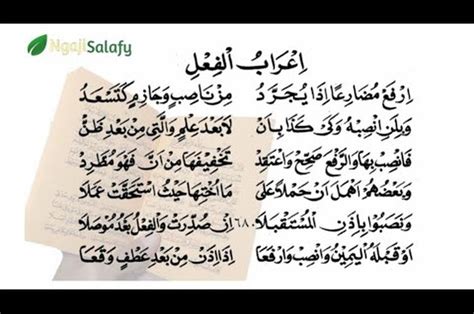 NgajiSalafy
اِعْرَابُ الْفِعْلِ
اِرْفَعْ مُضَارِعًا اِذَا يُجَرَّدُ مِنْ نَاصِبٍ وَجَازِمٍ كَتَسْعَدُ
وَبِلَنِ انْصِبْهُ وَكَيْ كَذَا بِاَنْ لَا بَعْدَ عِلْمٍ وَالَّتِي مِنْ بَعْدِ ظَنّْ
فَانْصِبْ بِهَا وَالرَّفْعَ صَحِّحْ وَاعْتَقِدْ تَخْفِيْفَهَا مِنْ اَنَّ فَهُوَ مُطَّرِدْ
وَبَعْضُهُمْ اَهْمَلَ اَنْ حَمْلًا عَلَى مَا اُخْتِهَا حَيْثُ اسْتَحَقَّتْ عَمَلَا
وَنَصَبُوْا بِاِذَنِ الْمُسْتَقْبَلَا ٦٨٠ اِنْ صُدِّرَتْ وَالْفِعْلُ بَعْدُ مُوْصَلَا
اَوْ قَبْلَهُ الْيَمِيْنُ وَانْصِبْ وَارْفَعَا اِذَا اِذَنْ مِنْ بَعْدِ عَطْفٍ وَقَعَا